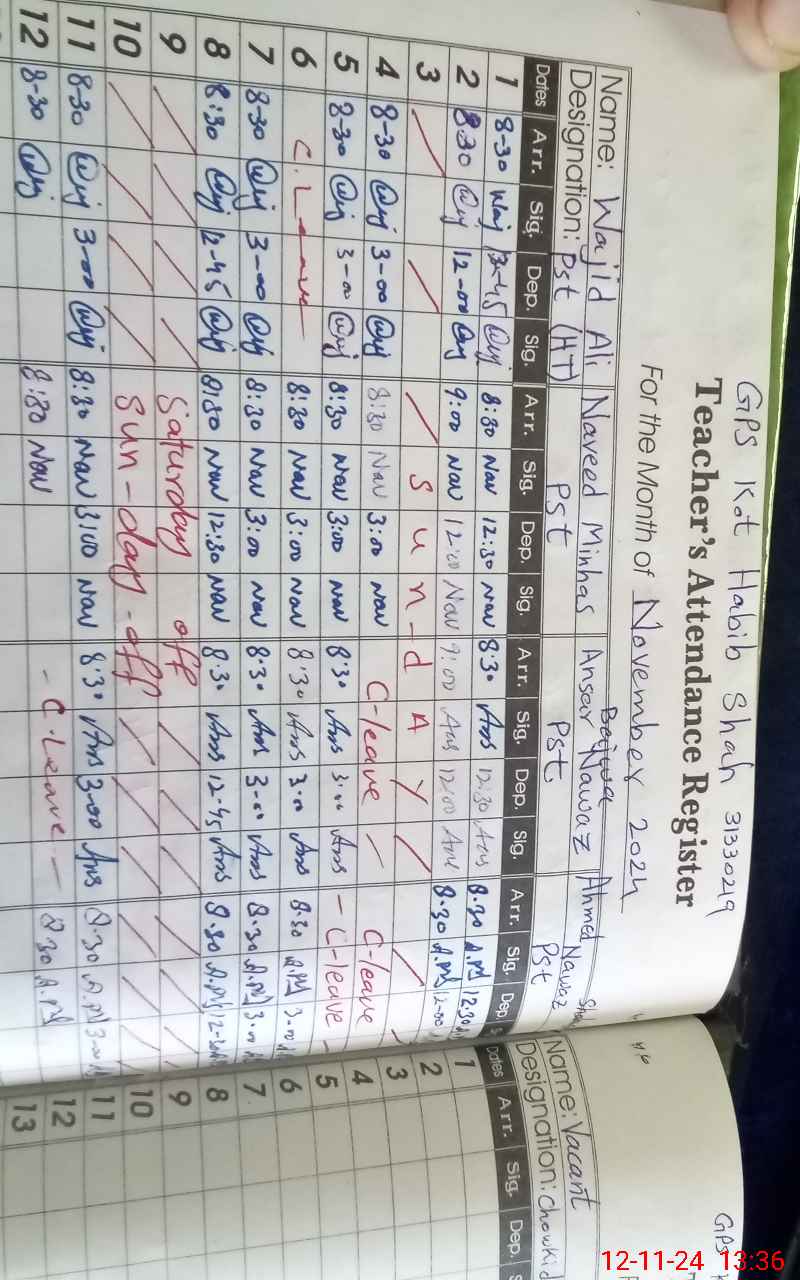 GPS Kot Habib Shah 31330219
Teacher's Attendance Register
For the Month of November 2024
Name: Wajid Ali Naveed Minhas Ansar Nawaz Bajwa Ahmed Nawaz
Designation: Pst (HT) Pst Pst Pst
Dates Arr. Sig. Dep. Sig. Arr. Sig. Dep. Sig. Arr. Sig. Dep. Sig. Arr. Sig. Dep.
1 8-30 Waj 12-45 Waj 8:30 Nav 12:30 Nav 8:30 Ans 12:30 Ans 8.30 A.M 12:30
2 8:30 Waj 12-00 Waj 9:00 Nav 12:00 Nav 9:00 Ans 12:00 Ans 8.30 A.M 12-00
3 Sun-dAY
4 8-30 Waj 3-00 Waj 8:30 Nav 3:00 Nav C-leave C-leave
5 8-30 Waj 3-00 Waj 8:30 Nav 3:00 Nav 8:30 Ans 3:00 Ans - C-leave -
6 C. Leave 8:30 Nav 3:00 Nav 8:30 Ans 3:00 Ans 8.30 A.M 3-00
7 8-30 Waj 3-00 Waj 8:30 Nav 3:00 Nav 8:30 Ans 3-00 Ans 8.30 A.M 3-00
8 8:30 Waj 12-45 Waj 8:30 Nav 12:30 Nav 8.30 Ans 12-45 Ans 8.30 A.M
9 Saturday off
10 Sun-day-off
11 8-30 Waj 3-00 Waj 8:30 Nav 3:00 Nav 8:30 Ans 3-00 Ans 8.30 A.M 3-00
12 8-30 Waj 8:30 Nav - C.Leave - 8.30 A.M
GPS
Name: Vacant
Designation: Chowkid
Dates Arr. Sig. Dep.
1
2
3
4
5
6
7
8
9
10
11
12
13
12-11-24 13:36